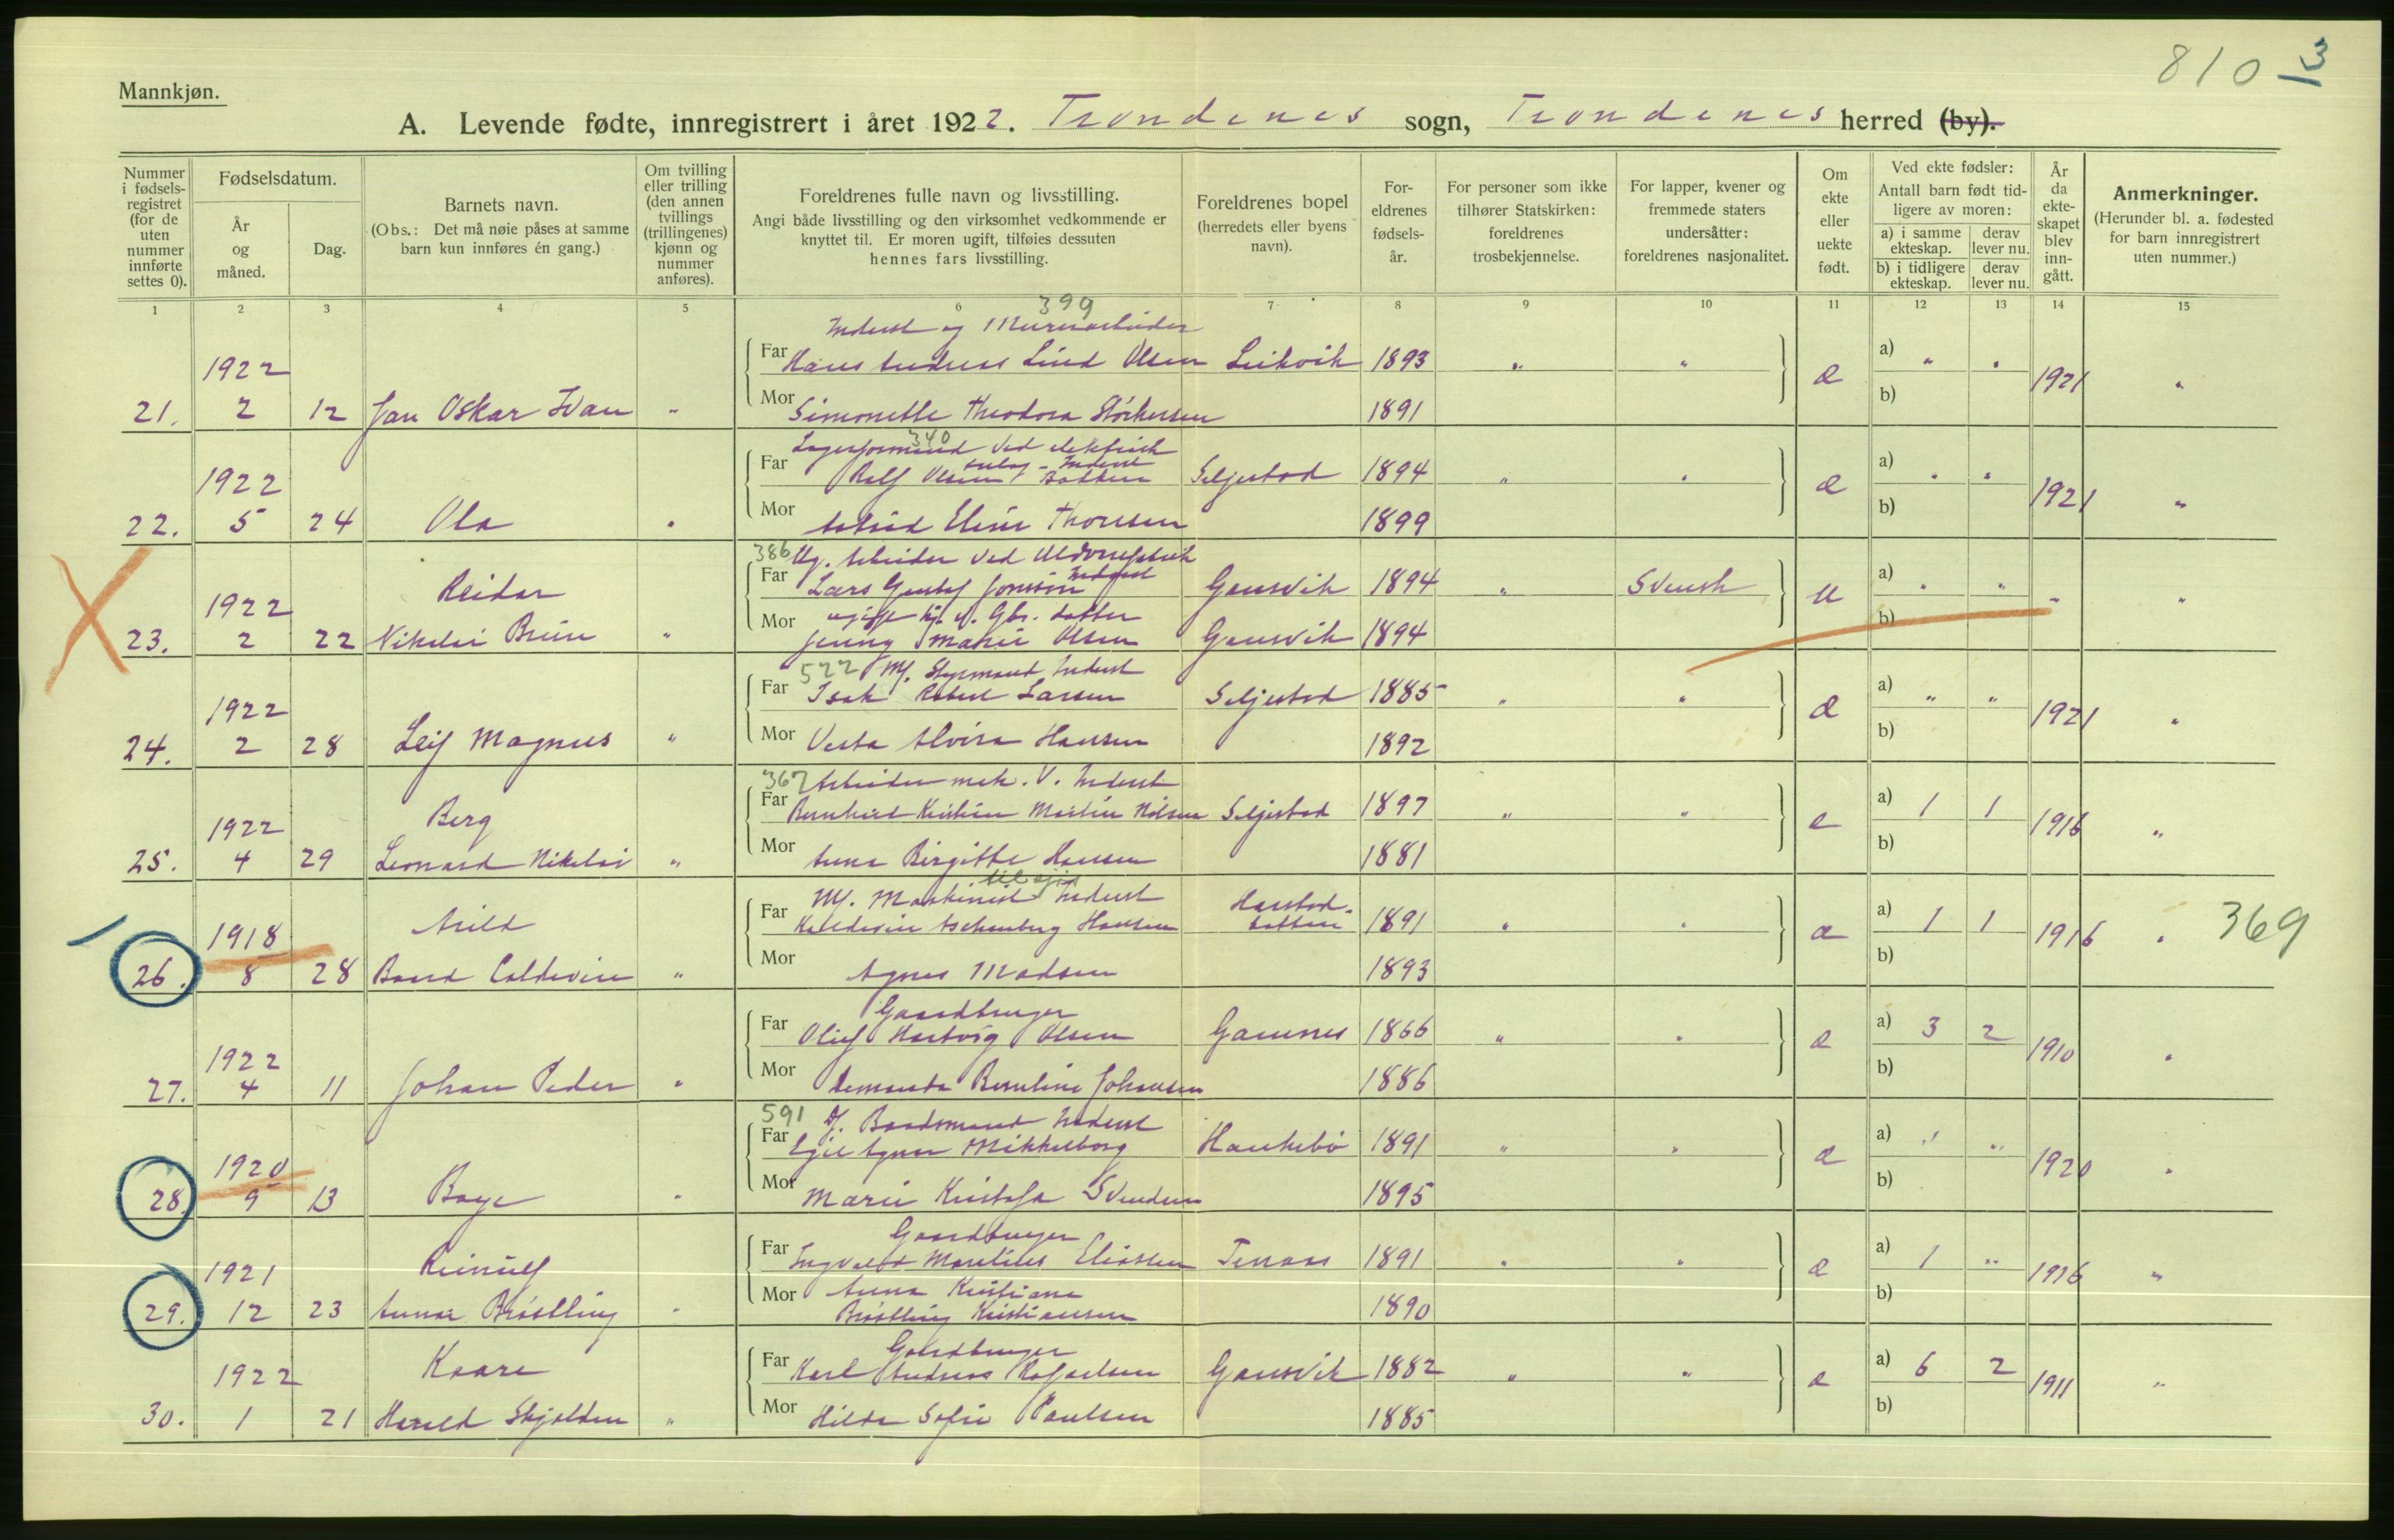 810 3
Mannkjøn.
A. Levende fødte, innregistrert i året 1922. Trondenes sogn, Trondenes herred (by).
Nummer i fødsels-registret (for de uten nummer innførte settes 0).
Fødselsdatum.
År og måned.
Dag.
Barnets navn.
(Obs.: Det må nøie påses at samme barn kun innføres én gang.)
Om tvilling eller trilling (den annen tvillings (trillingenes) kjønn og nummer anføres).
Foreldrenes fulle navn og livsstilling.
Angi både livsstilling og den virksomhet vedkommende er knyttet til. Er moren ugift, tilføies dessuten hennes fars livsstilling.
Foreldrenes bopel
(herredets eller byens navn).
For-eldrenes fødsels-år.
For personer som ikke tilhører Statskirken: foreldrenes trosbekjennelse.
For lapper, kvener og fremmede staters undersåtter: foreldrenes nasjonalitet.
Om ekte eller uekte født.
Ved ekte fødsler:
Antall barn født tid-ligere av moren:
a) i samme ekteskap. derav lever nu.
b) i tidligere ekteskap. derav lever nu.
År da ekte-skapet blev inn-gått.
Anmerkninger.
(Herunder bl. a. fødested for barn innregistrert uten nummer.)
1 2 3 4 5 6 7 8 9 10 11 12 13 14 15
399
Inderst og Murerarbeider
1922 Far Hans Andreas Lind Olsen Leikvik 1893 " " a) " "
21. 2 12 Jan Oskar Ivan " Mor Simonette Theodora Størkersen 1891 e b) 1921 "
340
Lagerformand ved elektrisk
anlæg - Inderst
1922 Far Rolf Olsen Seljestad 1894 " " a) " "
22. 5 24 Ola " Mor Astrid Eline Thorsen 1899 e b) 1921 "
386 Ug. Arbeider ved Uldvarefabrik
Inderst
1922 Reidar Far Lars Gustaf Jonsson Gansvik 1894 " Svensk a) " "
ugift
23. 2 22 Nikolai Brun " Mor Jenny Marie Olsen Gansvik 1894 u b) " "
522 Mf. Styrmand Inderst
1922 Far Isak Robert Larsen Seljestad 1885 " " a) " "
24. 2 28 Leif Magnus " Mor Vesta Alvira Hansen 1892 e b) 1921 "
367 Arbeider mek. V. Inderst
1922 Berg Far Bernhard Kristian Martin Nilsen Seljestad 1897 " " a) 1 1
25. 4 29 Leonard Nikolai " Mor Anna Birgitte Hansen 1881 e b) 1916 "
Mf. Maskinist Inderst
1918 Arild Far Hansen Harstad-botten 1891 " " a) 1 1
26. 8 28 Baard Caldevin " Mor Agnes Madsen 1893 e b) 1916 " 369
Gaardbruger
1922 Far Oluf Hartvig Olsen Gamnes 1866 " " a) 3 2
27. 4 11 Johan Peder " Mor Amanda Berntine Johansen 1886 e b) 1910 "
591 Baadsmand Inderst
1920 Far Mikkelborg Haukebø 1891 " " a) " "
28. 9 13 Baye " Mor Marie Kristofa Svendsen 1895 e b) 1920 "
Gaardbruger
1921 Reinulf Far Ingvald Marelius Eliassen Tennaas 1891 " " a) 1 "
29. 12 23 Annar Brostling " Mor Anna Kristiane
Brostling Kristiansen 1890 e b) 1916 "
Gaardbruger
1922 Kaare Far Karl Andreas Rafaelsen Gansvik 1882 " " a) 6 2
30. 1 21 Harald Skjolden " Mor Hilda Sofie Paulsen 1885 e b) 1911 "